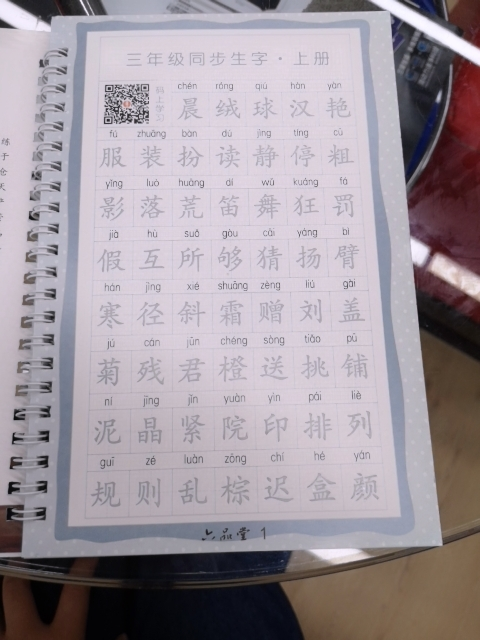 三年级同步生字·上册
chén róng qiú hàn yàn
晨 绒 球 汉 艳
fú zhuāng bàn dú jìng tíng cū
服 装 扮 读 静 停 粗
yǐng luò huāng dí wǔ kuáng fá
影 落 荒 笛 舞 狂 罚
jià hù suǒ gòu cāi yáng bì
假 互 所 够 猜 扬 臂
hán jìng xié shuāng zèng liú gài
寒 径 斜 霜 赠 刘 盖
jú cán jūn chéng sòng tiāo pū
菊 残 君 橙 送 挑 铺
ní jīng jǐn yuàn yìn pái liè
泥 晶 紧 院 印 排 列
guī zé luàn zōng chí hé yán
规 则 乱 棕 迟 盒 颜
六品堂 1